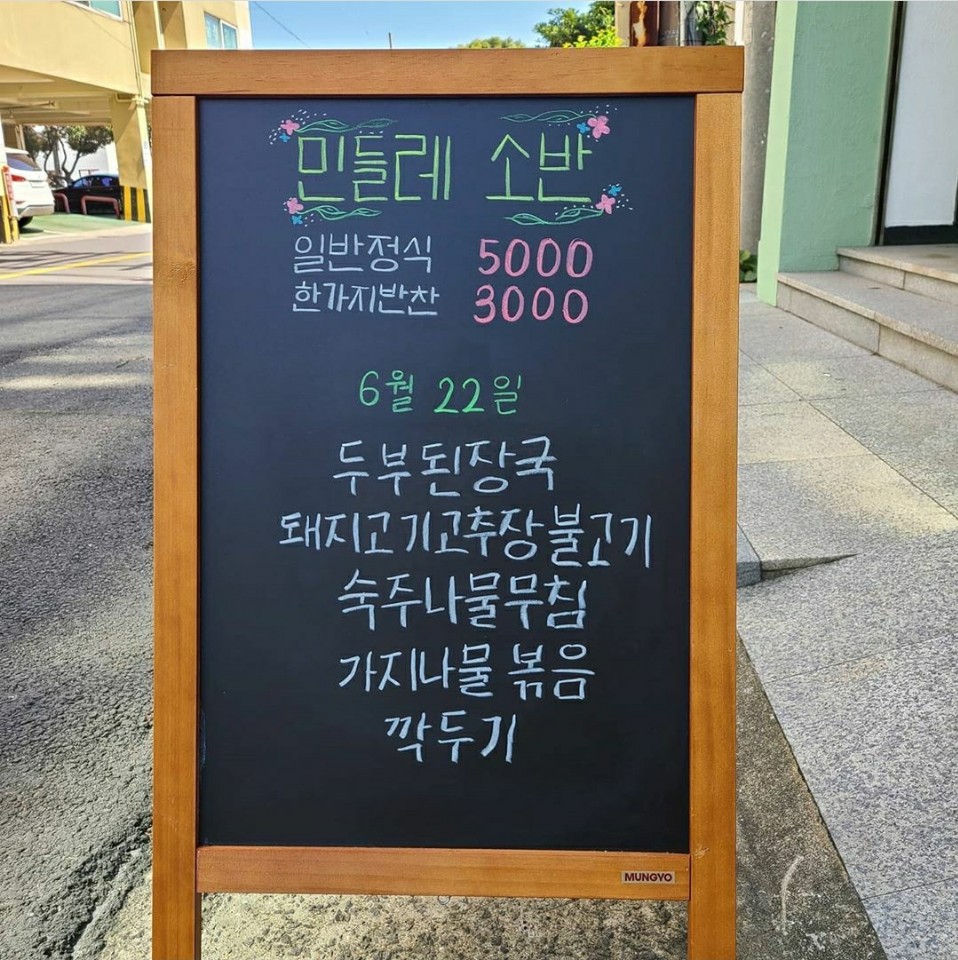 민들레 소반
일반정식 5000
한가지반찬 3000
6월 22일
두부된장국
돼지고기고추장불고기
숙주나물무침
가지나물 볶음
깍두기
MUNGYO